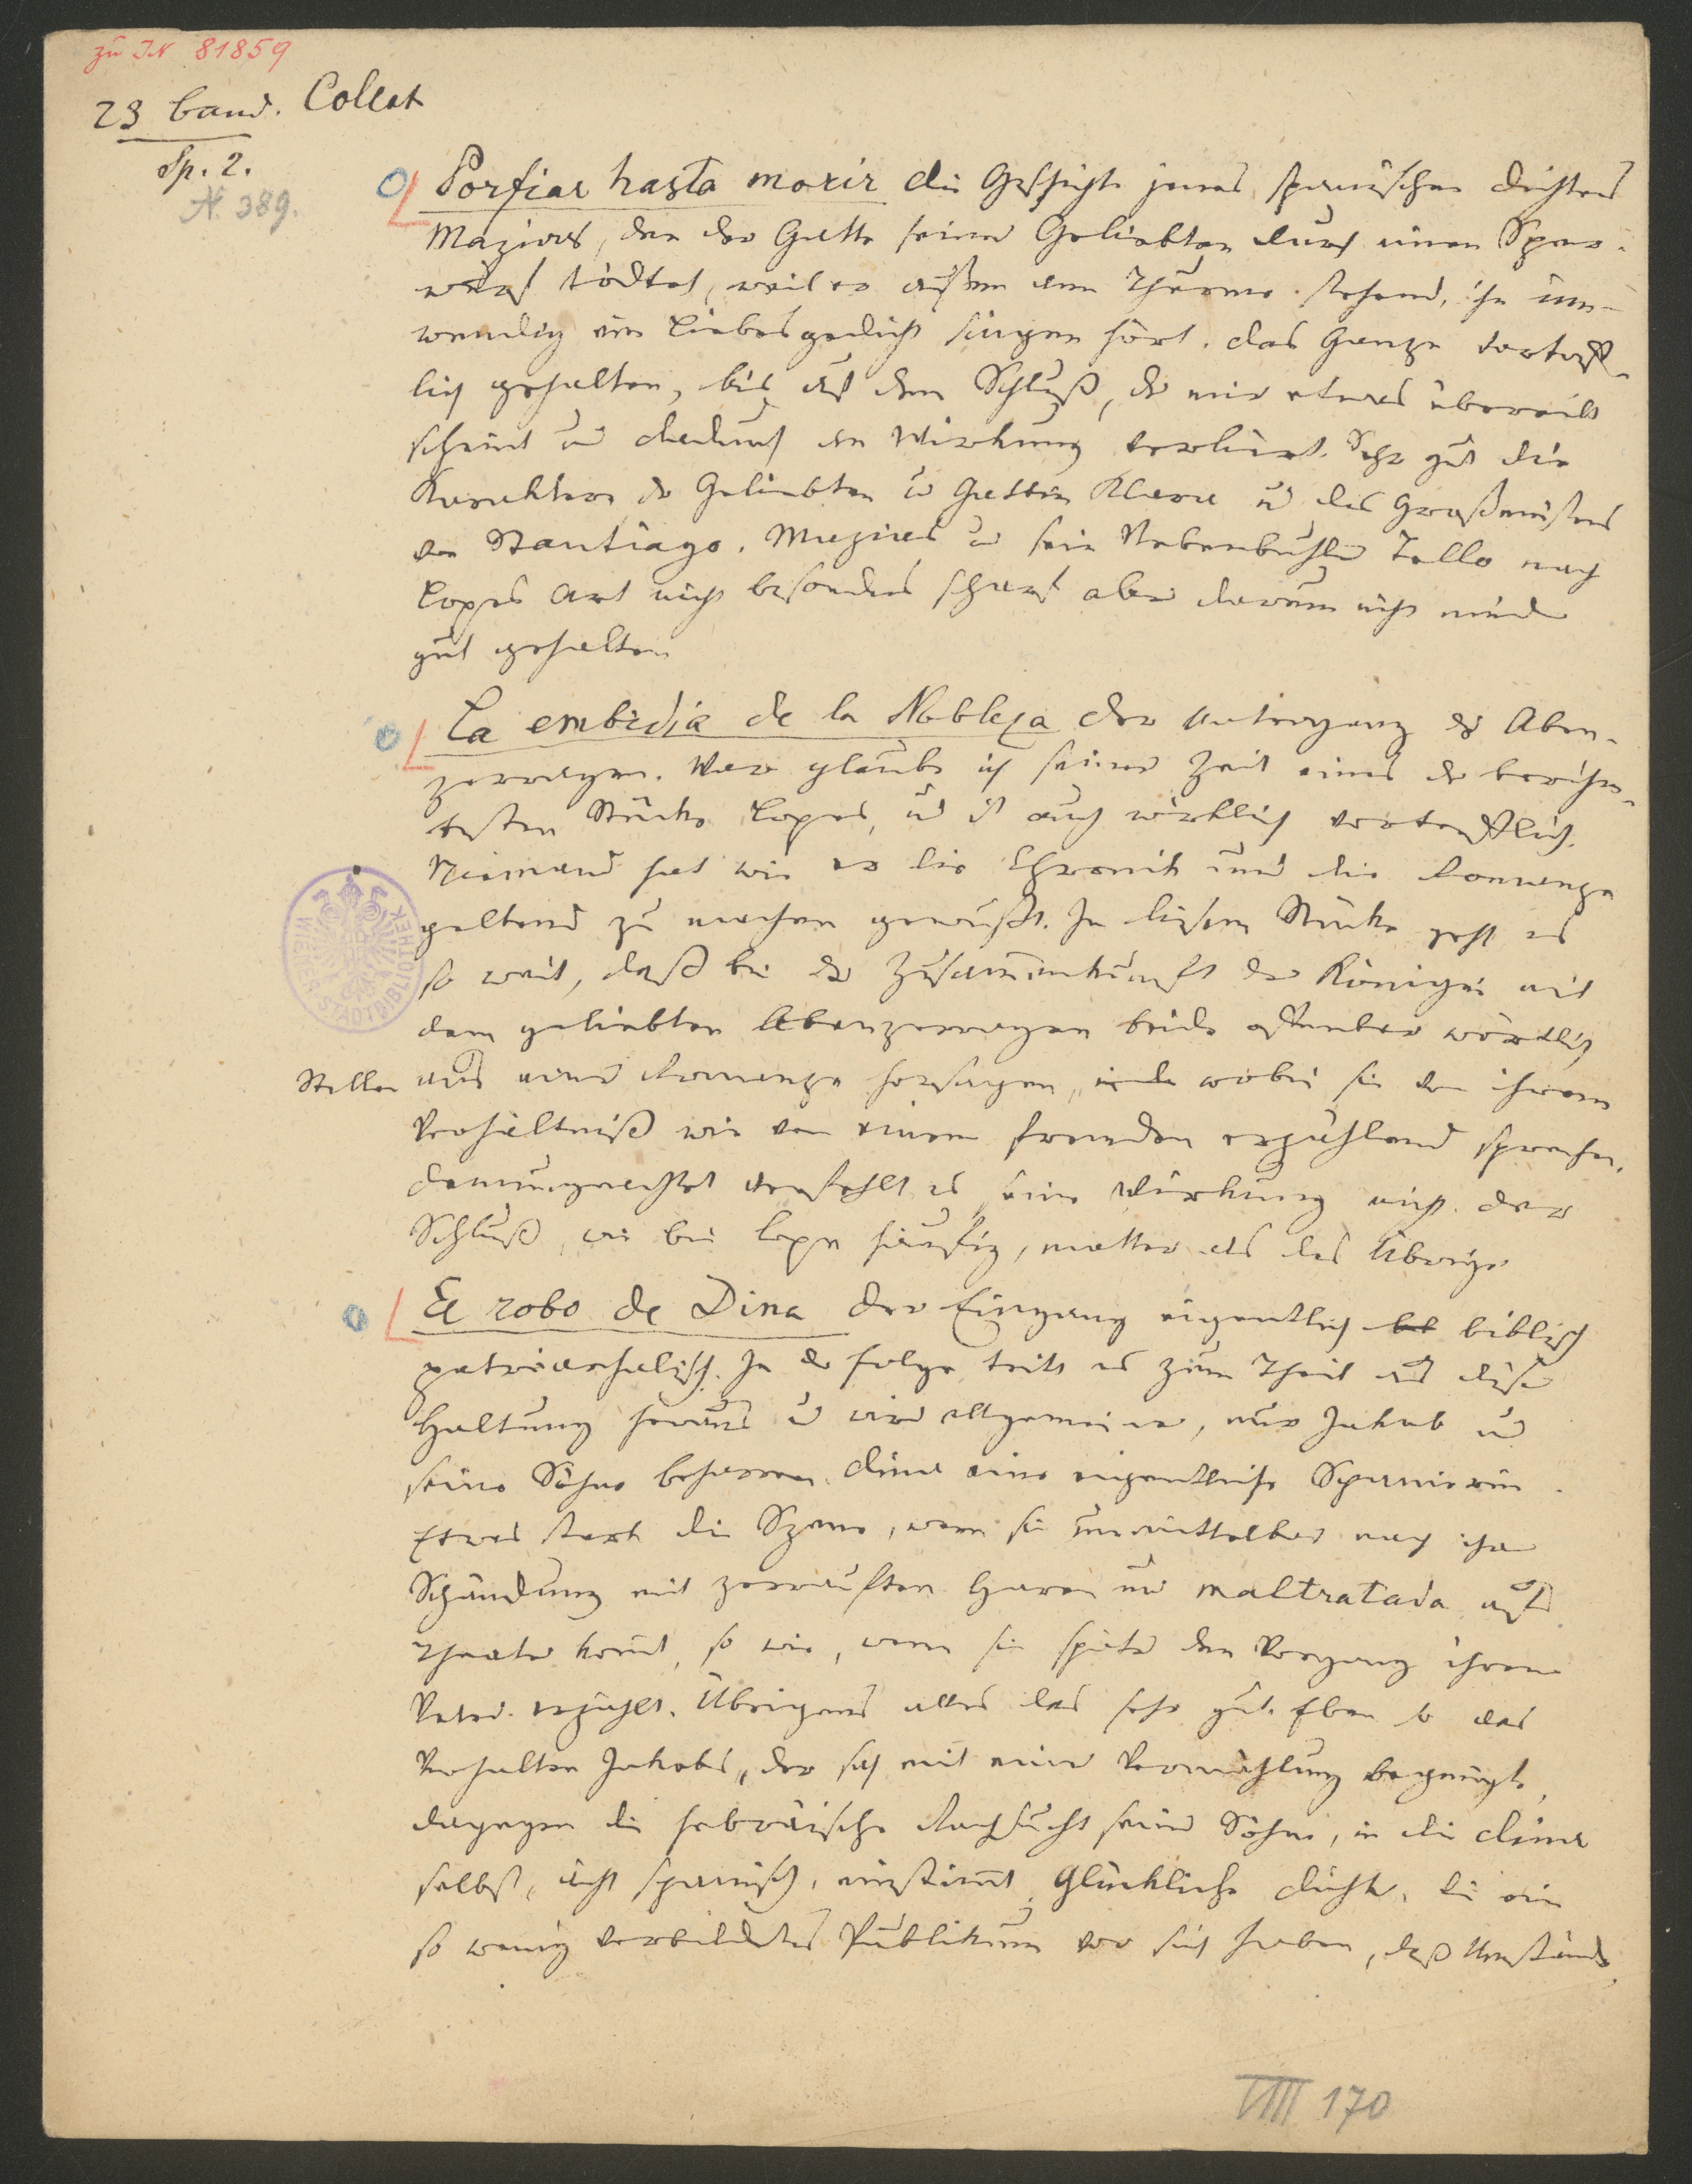 zu IN 81859
23 Band. Collat
Sp. 2.
N. 389.
Porfiar hasta morir die Geschichte jenes spanischen Dichters
Mazias, den der Gatte seiner Geliebten durch einen Speer-
wurf tödtet, weil er außen am Thurme stehend, ihn inn-
wendig ein Liebesgedicht singen hört. Das Ganze vortreff-
lich gehalten, bis auf den Schluß, der mir etwas übereilt
scheint und dadurch an Wirkung verliert. Sehr gut die
Karaktere der Geliebten u Gattin Klara u des Großmeisters
von Santiago. Mazias u sein Nebenbuhler Tello nach
Lopes Art nicht besonders scharf aber darum nicht minder
gut gehalten
La embidia de la Nobleza der Untergang der Aben-
zerragen. War glaube ich seiner Zeit eines der berühm-
testen Stücke Lopes, und ist auch wirklich vortrefflich.
Niemand hat wie er die Chronik und die Romanze
geltend zu machen gewußt. In diesem Stücke geht es
so weit, daß bei der Zusammenkunft der Königin mit
dem geliebten Abenzerragen beide offenbar wörtlich
Stellen aus einer Romanze hersagen, wobei sie von ihrem
Verhältniß wie von einem fremden erzählend sprechen.
Demungeachtet verfehlt es seine Wirkung nicht. Der
Schluß, wie bei Lope häufig, matter als das Übrige
El robo de Dina Der Eingang eigentlich biblisch
patriarchalisch. In der Folge tritt es zum Theil aus dieser
Haltung heraus u wird allgemeiner, nur Jakob und
seine Söhne beharren. Dina eine eigentliche Spanierin.
Etwas stark die Szene, wenn sie unmittelbar nach ihrer
Schändung mit zerrauften Haren und maltratada aufs
Theater komt, so wie, wenn sie später den Vorgang ihrem
Vater erzählt. Übrigens alles das sehr gut. Eben so das
Verhalten Jakobs, der sich mit einer Vermählung begnügte,
dagegen die hebräische Rachsucht seiner Söhne, in die Dina
selbst, ächt spanisch, einstimt. Glückliche Dichter, die ein
so wenig verbildetes Publikum vor sich haben, daß Umstände,
WIENER STADTBIBLIOTHEK
VIII 170